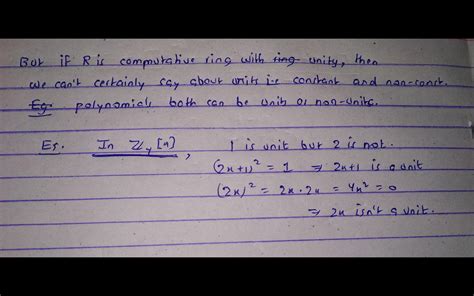 But if R is commutative ring with ring unity, then
we can't certainly say about units i.e constant and non-const.
Eg. polynomials both can be units or non-units.
Eg. In Z₄[x], 1 is unit but 2 is not.
(2x+1)² = 1 ⇒ 2x+1 is a unit
(2x)² = 2x·2x = 4x² = 0
⇒ 2x isn't a unit.